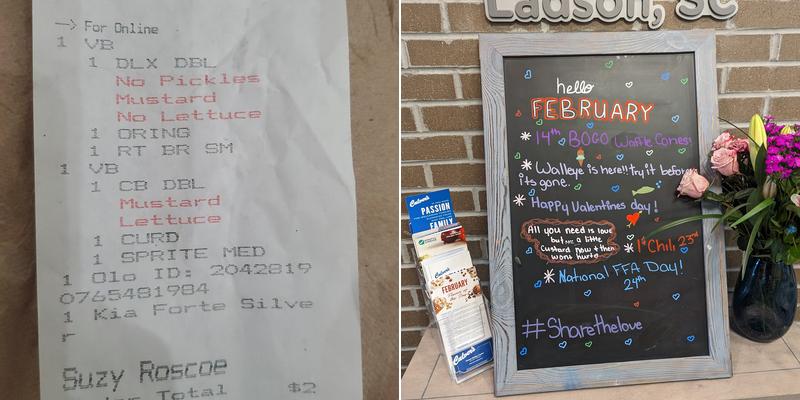 --> For Online
1 VB
1 DLX DBL
No Pickles
Mustard
No Lettuce
1 ORING
1 RT BR SM
1 VB
1 CB DBL
Mustard
Lettuce
1 CURD
1 SPRITE MED
1 Olo ID: 2042819
0765481984
1 Kia Forte Silve
r
Suzy Roscoe
Total $2
Ladson, SC
hello
FEBRUARY
* 14th BOGO Waffle Cones!
* Walleye is here!! try it before
its gone.
* Happy Valentines day!
All you need is love
but a little
custard now + then
wont hurt
* 1st Chili, 23rd
* National FFA Day!
24th
#Sharethelove
Culver's
PASSION
FAMILY
Culver's
FEBRUARY
Culver's